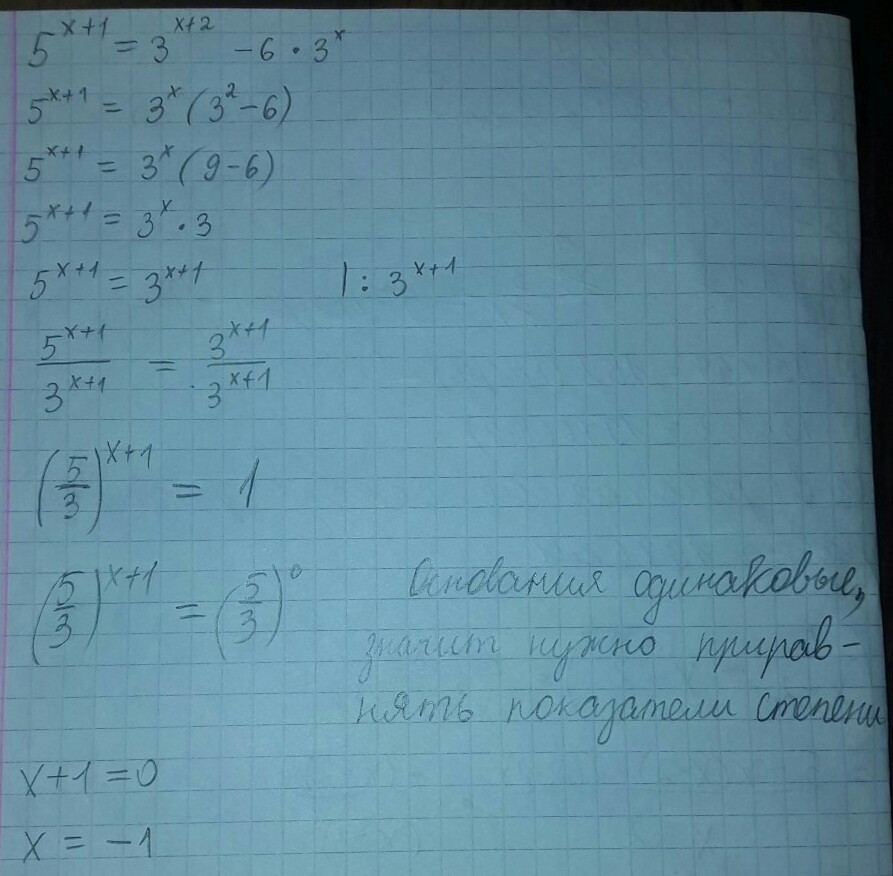 5^{x+1} = 3^{x+2} - 6 · 3^x
5^{x+1} = 3^x (3^2 - 6)
5^{x+1} = 3^x (9 - 6)
5^{x+1} = 3^x · 3
5^{x+1} = 3^{x+1} | : 3^{x+1}
\frac{5^{x+1}}{3^{x+1}} = \frac{3^{x+1}}{3^{x+1}}
(\frac{5}{3})^{x+1} = 1
(\frac{5}{3})^{x+1} = (\frac{5}{3})^0 Основания одинаковые,
значит нужно прирав-
нять показатели степени
x + 1 = 0
x = -1